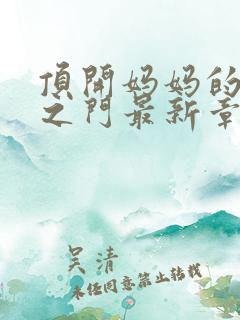 頂開妈妈的
之门最新章
吴清
未经同意禁止转载